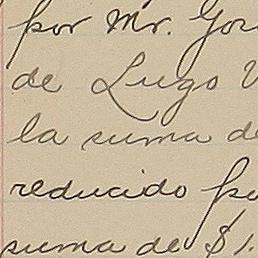 por Mr. Geo
de Lugo V
la suma de
reducido por
suma de $1.